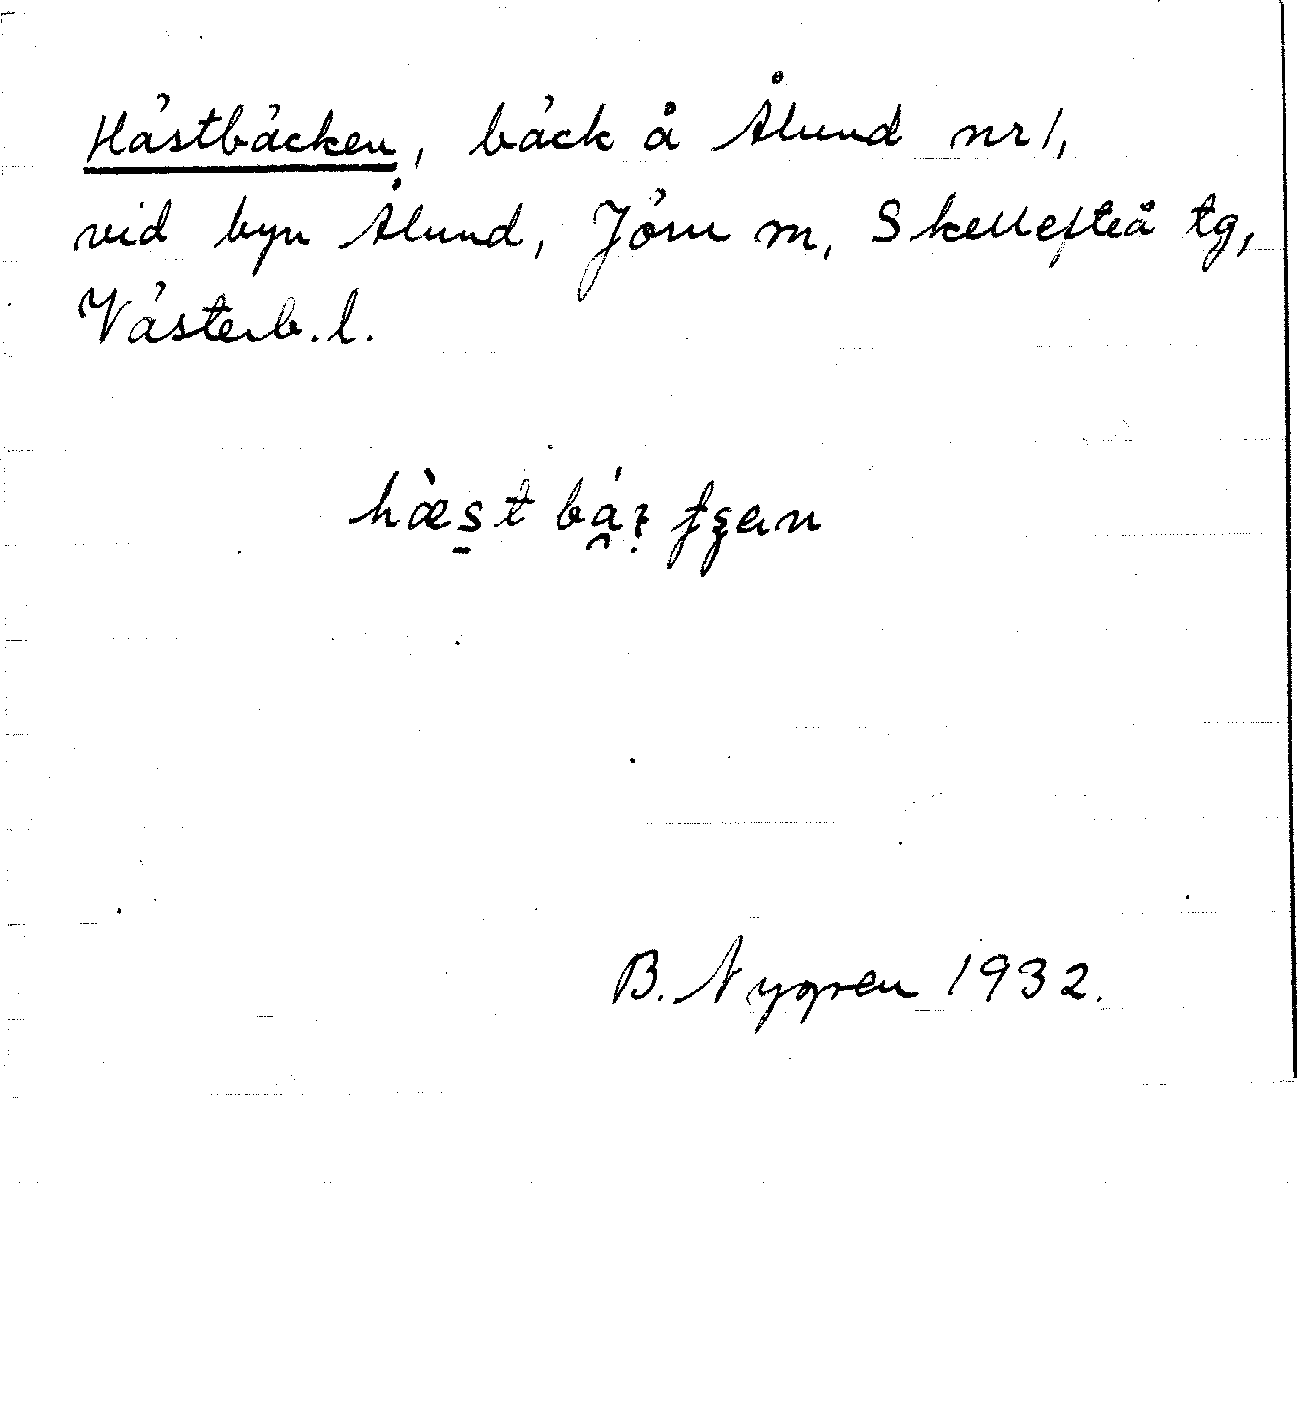 Hästbäcken, bäck å Ålund nr 1,
vid byn Ålund, Jörn m, Skellefteå tg,
Västerb. l.
B. Nygren 1932.